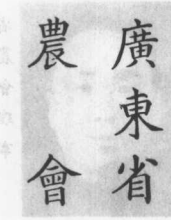 廣東省
農會